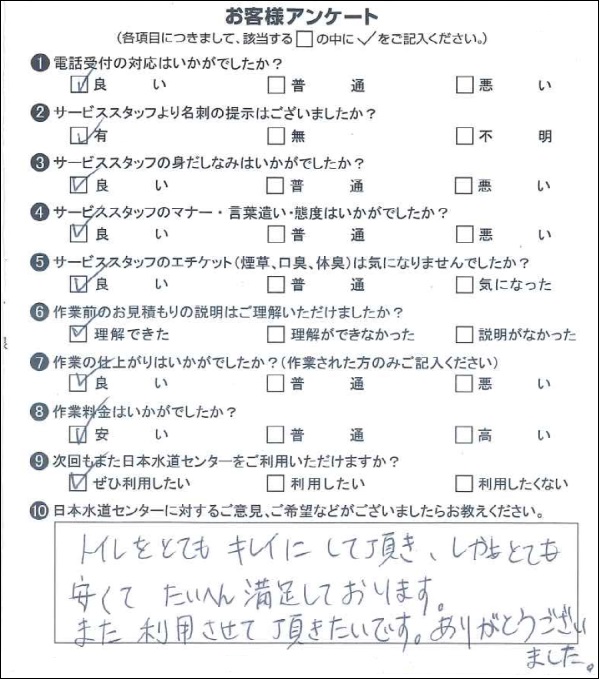 お客様アンケート
(各項目につきまして、該当する□の中に✓をご記入ください。)
❶電話受付の対応はいかがでしたか?
☑良い □普通 □悪い
❷サービススタッフより名刺の提示はございましたか?
☑有 □無 □不明
❸サービススタッフの身だしなみはいかがでしたか?
☑良い □普通 □悪い
❹サービススタッフのマナー・言葉遣い・態度はいかがでしたか?
☑良い □普通 □悪い
❺サービススタッフのエチケット(煙草、口臭、体臭)は気になりませんでしたか?
☑良い □普通 □気になった
❻作業前のお見積もりの説明はご理解いただけましたか?
☑理解できた □理解ができなかった □説明がなかった
❼作業の仕上がりはいかがでしたか?(作業された方のみご記入ください)
☑良い □普通 □悪い
❽作業料金はいかがでしたか?
☑安い □普通 □高い
❾次回もまた日本水道センターをご利用いただけますか?
☑ぜひ利用したい □利用したい □利用したくない
❿日本水道センターに対するご意見、ご希望などがございましたらお教えください。
トイレをとても キレイに して頂き、しかもとても
安くて たいへん 満足しております。
また 利用させて 頂きたいです。ありがとうござい
ました。